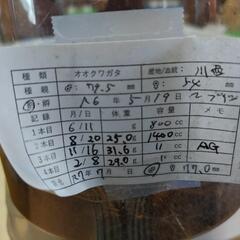 種類 オオクワガタ 産地/血統 川西
種親 ♂: 79.5 mm ♀: 54 mm
割・孵 R6年 5月19日
月/日 体重 容量 メモ
1本目 6/11 g 800cc
2本目 8/20 25.0g 1400cc
3本目 11/16 31.6g 〃cc AG
4本目 2/8 29.0g 〃cc
R7年7月 日 77.0mm